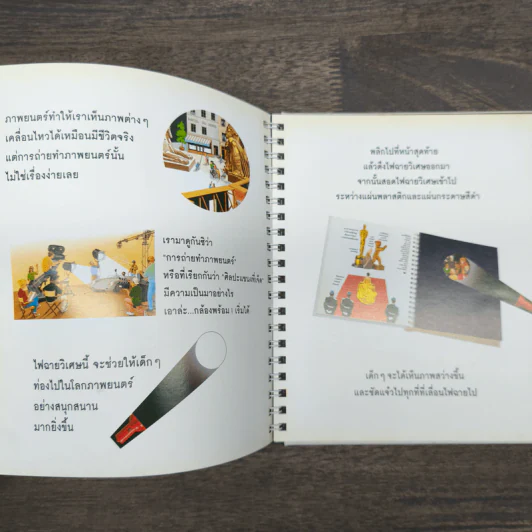 ภาพยนตร์ทำให้เราเห็นภาพต่างๆ
เคลื่อนไหวได้เหมือนมีชีวิตจริง
แต่การถ่ายทำภาพยนตร์นั้น
ไม่ใช่เรื่องง่ายเลย
เรามาดูกันซิว่า
'การถ่ายทำภาพยนตร์'
หรือที่เรียกกันว่า 'ศิลปะแขนงที่เจ็ด'
มีความเป็นมาอย่างไร
เอาล่ะ...กล้องพร้อม! เริ่มได้
ไฟฉายวิเศษนี้ จะช่วยให้เด็กๆ
ท่องไปในโลกภาพยนตร์
อย่างสนุกสนาน
มากยิ่งขึ้น
พลิกไปที่หน้าสุดท้าย
แล้วดึงไฟฉายวิเศษออกมา
จากนั้นสอดไฟฉายวิเศษเข้าไป
ระหว่างแผ่นพลาสติกและแผ่นกระดาษสีดำ
เด็กๆ จะได้เห็นภาพสว่างขึ้น
และชัดแจ๋วไปทุกที่ที่เลื่อนไฟฉายไป